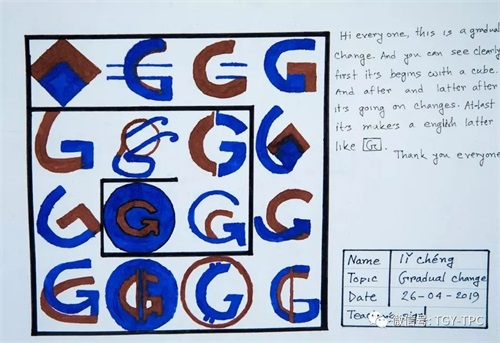 Hi every one, this is a gradual
change. And you can see clearly
first it's begins with a cube.
And after and latter after
it's going on changes. At-last
it's makes a english latter
like G.
Thank you everyone
Name Iỹ Chéng
Topic Gradual change
Date 26-04-2019
微信号: TGY-TPC